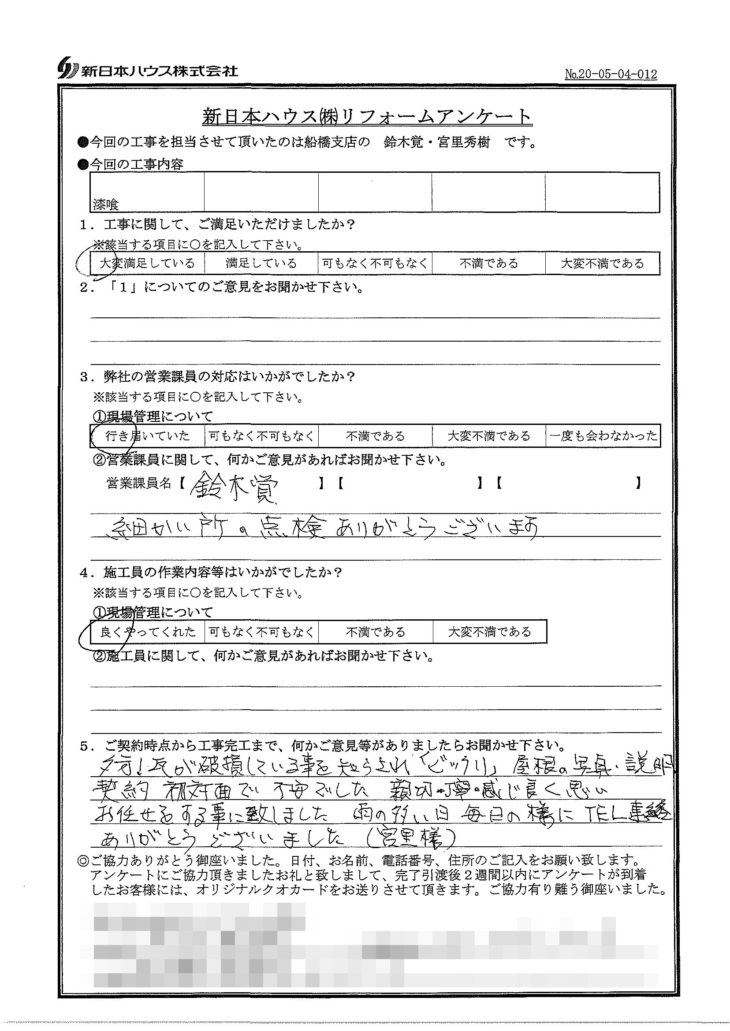 新日本ハウス株式会社
№20-05-04-012
新日本ハウス㈱リフォームアンケート
●今回の工事を担当させて頂いたのは船橋支店の 鈴木覚・宮里秀樹 です。
●今回の工事内容
漆喰
1．工事に関して、ご満足いただけましたか？
※該当する項目に○を記入して下さい。
大変満足している 満足している 可もなく不可もなく 不満である 大変不満である
2．「1」についてのご意見をお聞かせ下さい。
3．弊社の営業課員の対応はいかがでしたか？
※該当する項目に○を記入して下さい。
①現場管理について
行き届いていた 可もなく不可もなく 不満である 大変不満である 一度も会わなかった
②営業課員に関して、何かご意見があればお聞かせ下さい。
営業課員名【 鈴木覚 】【 】【 】
細かい所の点検ありがとうございます
4．施工員の作業内容等はいかがでしたか？
※該当する項目に○を記入して下さい。
①現場管理について
良くやってくれた 可もなく不可もなく 不満である 大変不満である
②施工員に関して、何かご意見があればお聞かせ下さい。
5．ご契約時点から工事完工まで、何かご意見等がありましたらお聞かせ下さい。
が破損している事を知らされ「ビックリ」屋根の写真・説明
契約 初対面で不安でした 親切・寧・感じ良く思い
お任せをする事に致しました 雨の多い日 毎日の様にTEL連絡
ありがとうございました（宮里様）
◎ご協力ありがとう御座いました。日付、お名前、電話番号、住所のご記入をお願い致します。
アンケートにご協力頂きましたお礼と致しまして、完了引渡後2週間以内にアンケートが到着
したお客様には、オリジナルクオカードをお送りさせて頂きます。ご協力有り難う御座いました。